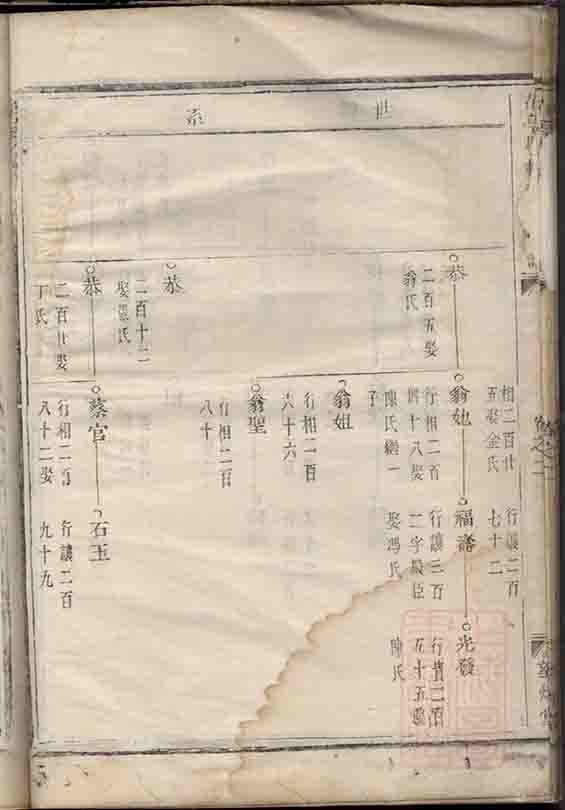 世系
卷之二
相二百廿
五娶金氏
行讓二百
七十二
恭
二百五娶
翁氏
翁她
行相二百
四十八娶
陳氏繼一
子
福壽
行讓三百
二字殿臣
娶馮氏
光發
行贊二百
五十五娶
陳氏
翁姐
行相二百
六十六
翁聖
行相二百
八十
恭
二百十二
娶氏
恭
二百廿娶
丁氏
蔡官
行相二百
八十二娶
石玉
行讓二百
九十九